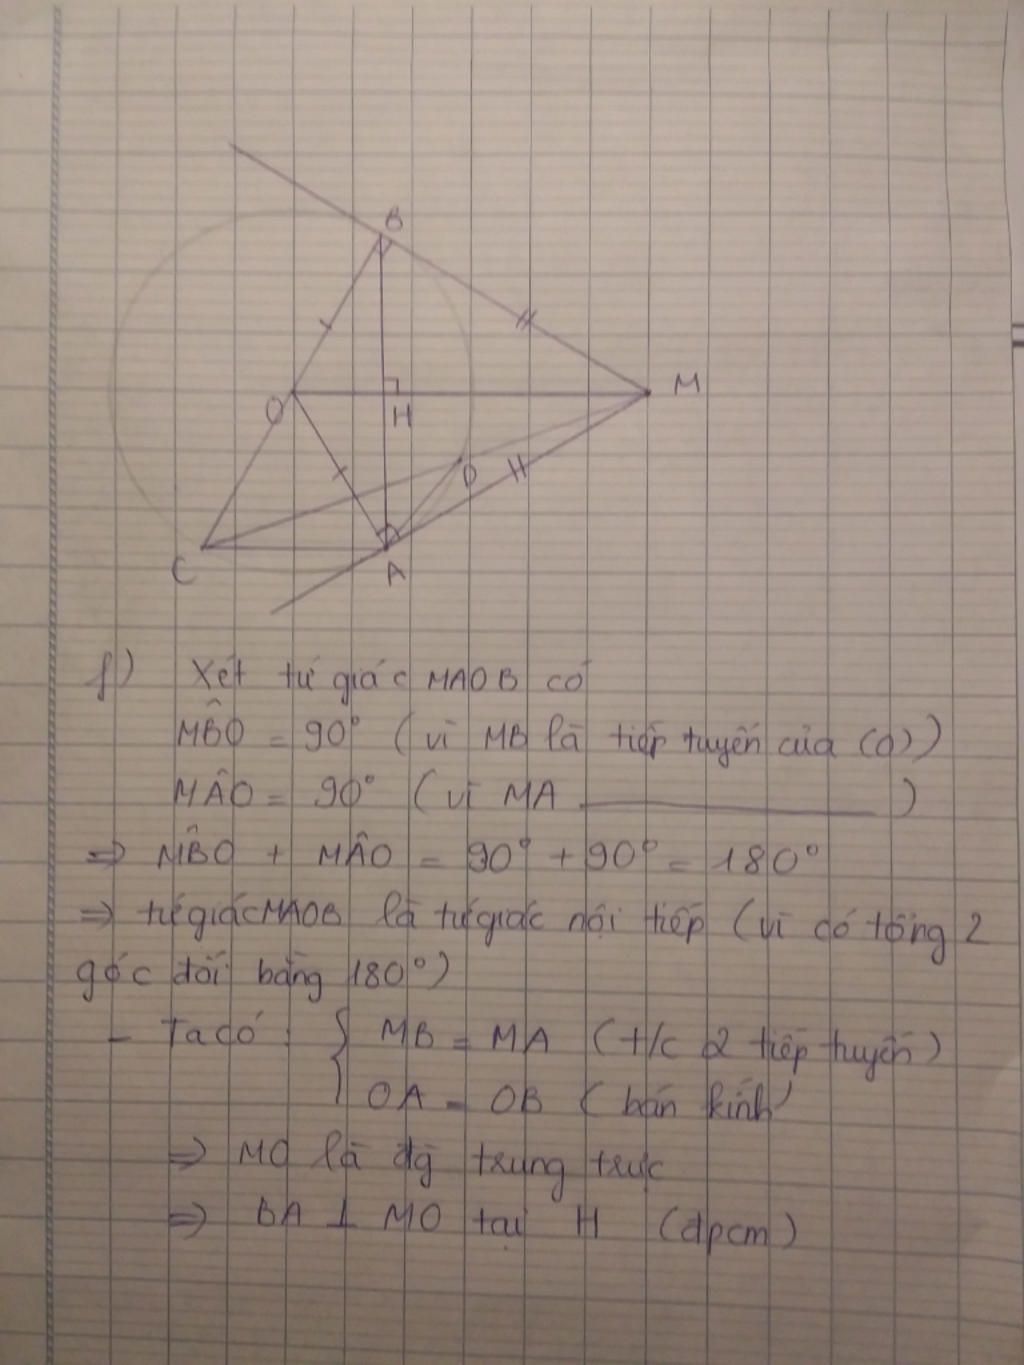 B
M
O
H
D
C
A
1) Xét tứ giác MAOB có
MB̂O = 90° (vì MB là tiếp tuyến của (O))
MÂO = 90° (vì MA ———————— )
⇒ MB̂O + MÂO = 90° + 90° = 180°
⇒ tứ giác MAOB là tứ giác nội tiếp (vì có tổng 2
góc đối bằng 180°)
- Ta có : { MB = MA (t/c 2 tiếp tuyến)
OA = OB (bán kính)
⇒ MO là đg trung trực
⇒ BA ⊥ MO tại H (đpcm)